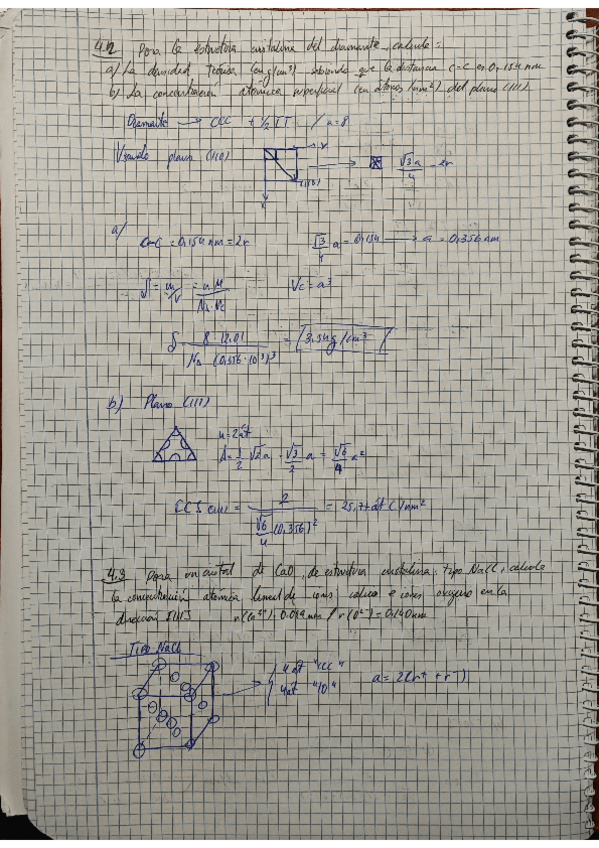 4.2 Para la estructura cristalina del diamante, calcule:
a) La densidad teórica (en g/cm³) sabiendo que la distancia C-C es 0,154 nm
b) La concentración atómica superficial (en átomos/nm²) del plano (111)
Diamante → CCC + ½ TT / a=8
Viendo plano (110)
y
(110)
x
√3a/4 = 2r
a)
C-C = 0,154 nm = 2r
√3/4 a = 0,154 → a = 0,356 nm
δ = m/V = n·M/(NA·Vc)
Vc = a³
δ = 8·12,01/(NA·(0,356·10⁻⁷)³) = 3,54 g/cm³
b) Plano (111)
n = 2 át
A = 1/2 √2a · √3/2 a = √6/4 a²
= 2/(√6/4 (0,356)²) = 25,77 át C/nm²
4.3 Para un cristal de CaO, de estructura cristalina tipo NaCl, calcule
la concentración atómica lineal de iones calcio e iones oxígeno en la
dirección r(Ca²⁺) 0.099 nm / r(O²⁻) = 0,140 nm
TIPO NaCl
4 át "CC"
4 át "IO"
a = 2(r⁺ + r⁻)